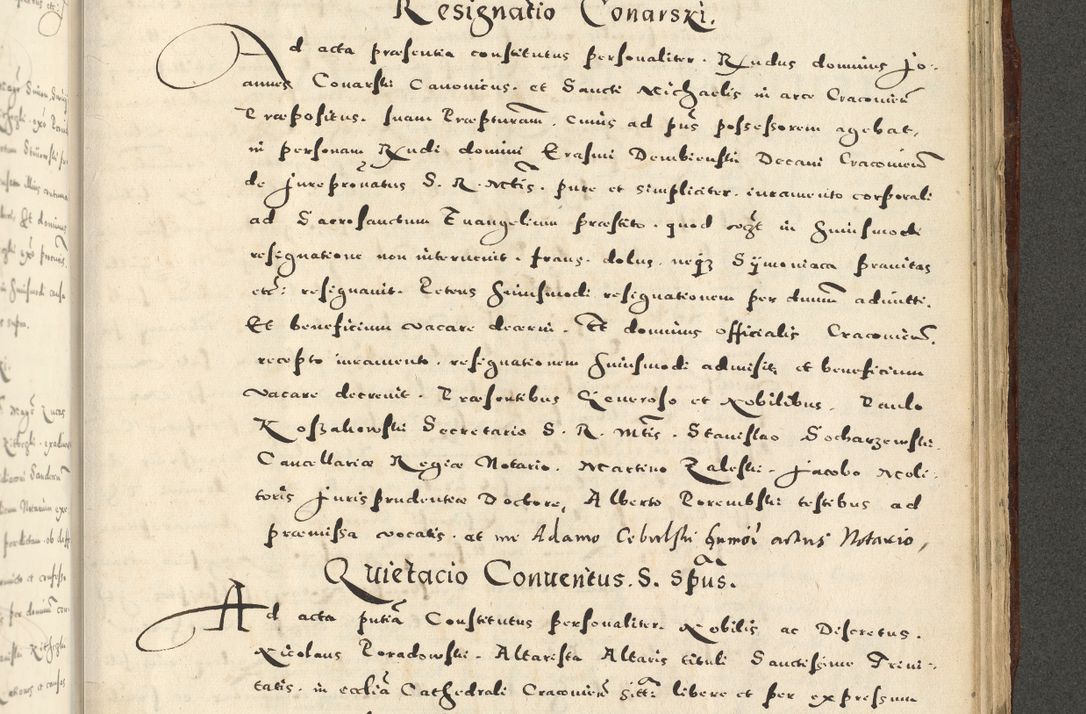 Resignatio Conarski.
Ad acta præsentia constitutus personaliter. Rxndus dominus Jo-
annes Conarski Canonicus. et Sancti Michaelis in arce Cracouien
Præpositus. suam Præpturam, cuius ad pns possessorem agebat,
in personam Rxndi domini Erasmi Dembienski Decani Cracouien
de Jurepronatus S. R. Mctis. pure et simpliciter. iuramento corporali
ad Sacrosanctum Euangelium præstito. quod in huiusmodi
resignatione non interuenit. fraus. dolus. neqz Symoniaca prauitas
etc: resignauit. Petens huiusmodi resignationem per dnum admitti.
Et beneficium vacare decerni. Et dominus officialis Cracouien.
recepto iuramento. resignationem huiusmodi admisit, et beneficium
vacare decreuit. Præsentibus Generoso et Nobilibus. Paulo
Koszakowski Secretario S. R. Mtis. Stanislao Socharzewski
Cancellariæ Regiæ Notario. Martino Zaleski. Jacobo Moli-
toris Jurisprudentiæ Doctore, Alberto Porembski testibus ad
præmissa vocatis. et me Adamo Cebulski actus Notario,
Quietacio Conuentus. S. Spus.
Ad acta pntia Constitutus personaliter. Nobilis ac Discretus.
Nicolaus Poradowski. Altarista Altaris tituli Sanctissime Trini-
tatis. in ecclia Cathedrali Cracouien sitt: libere et per expressum